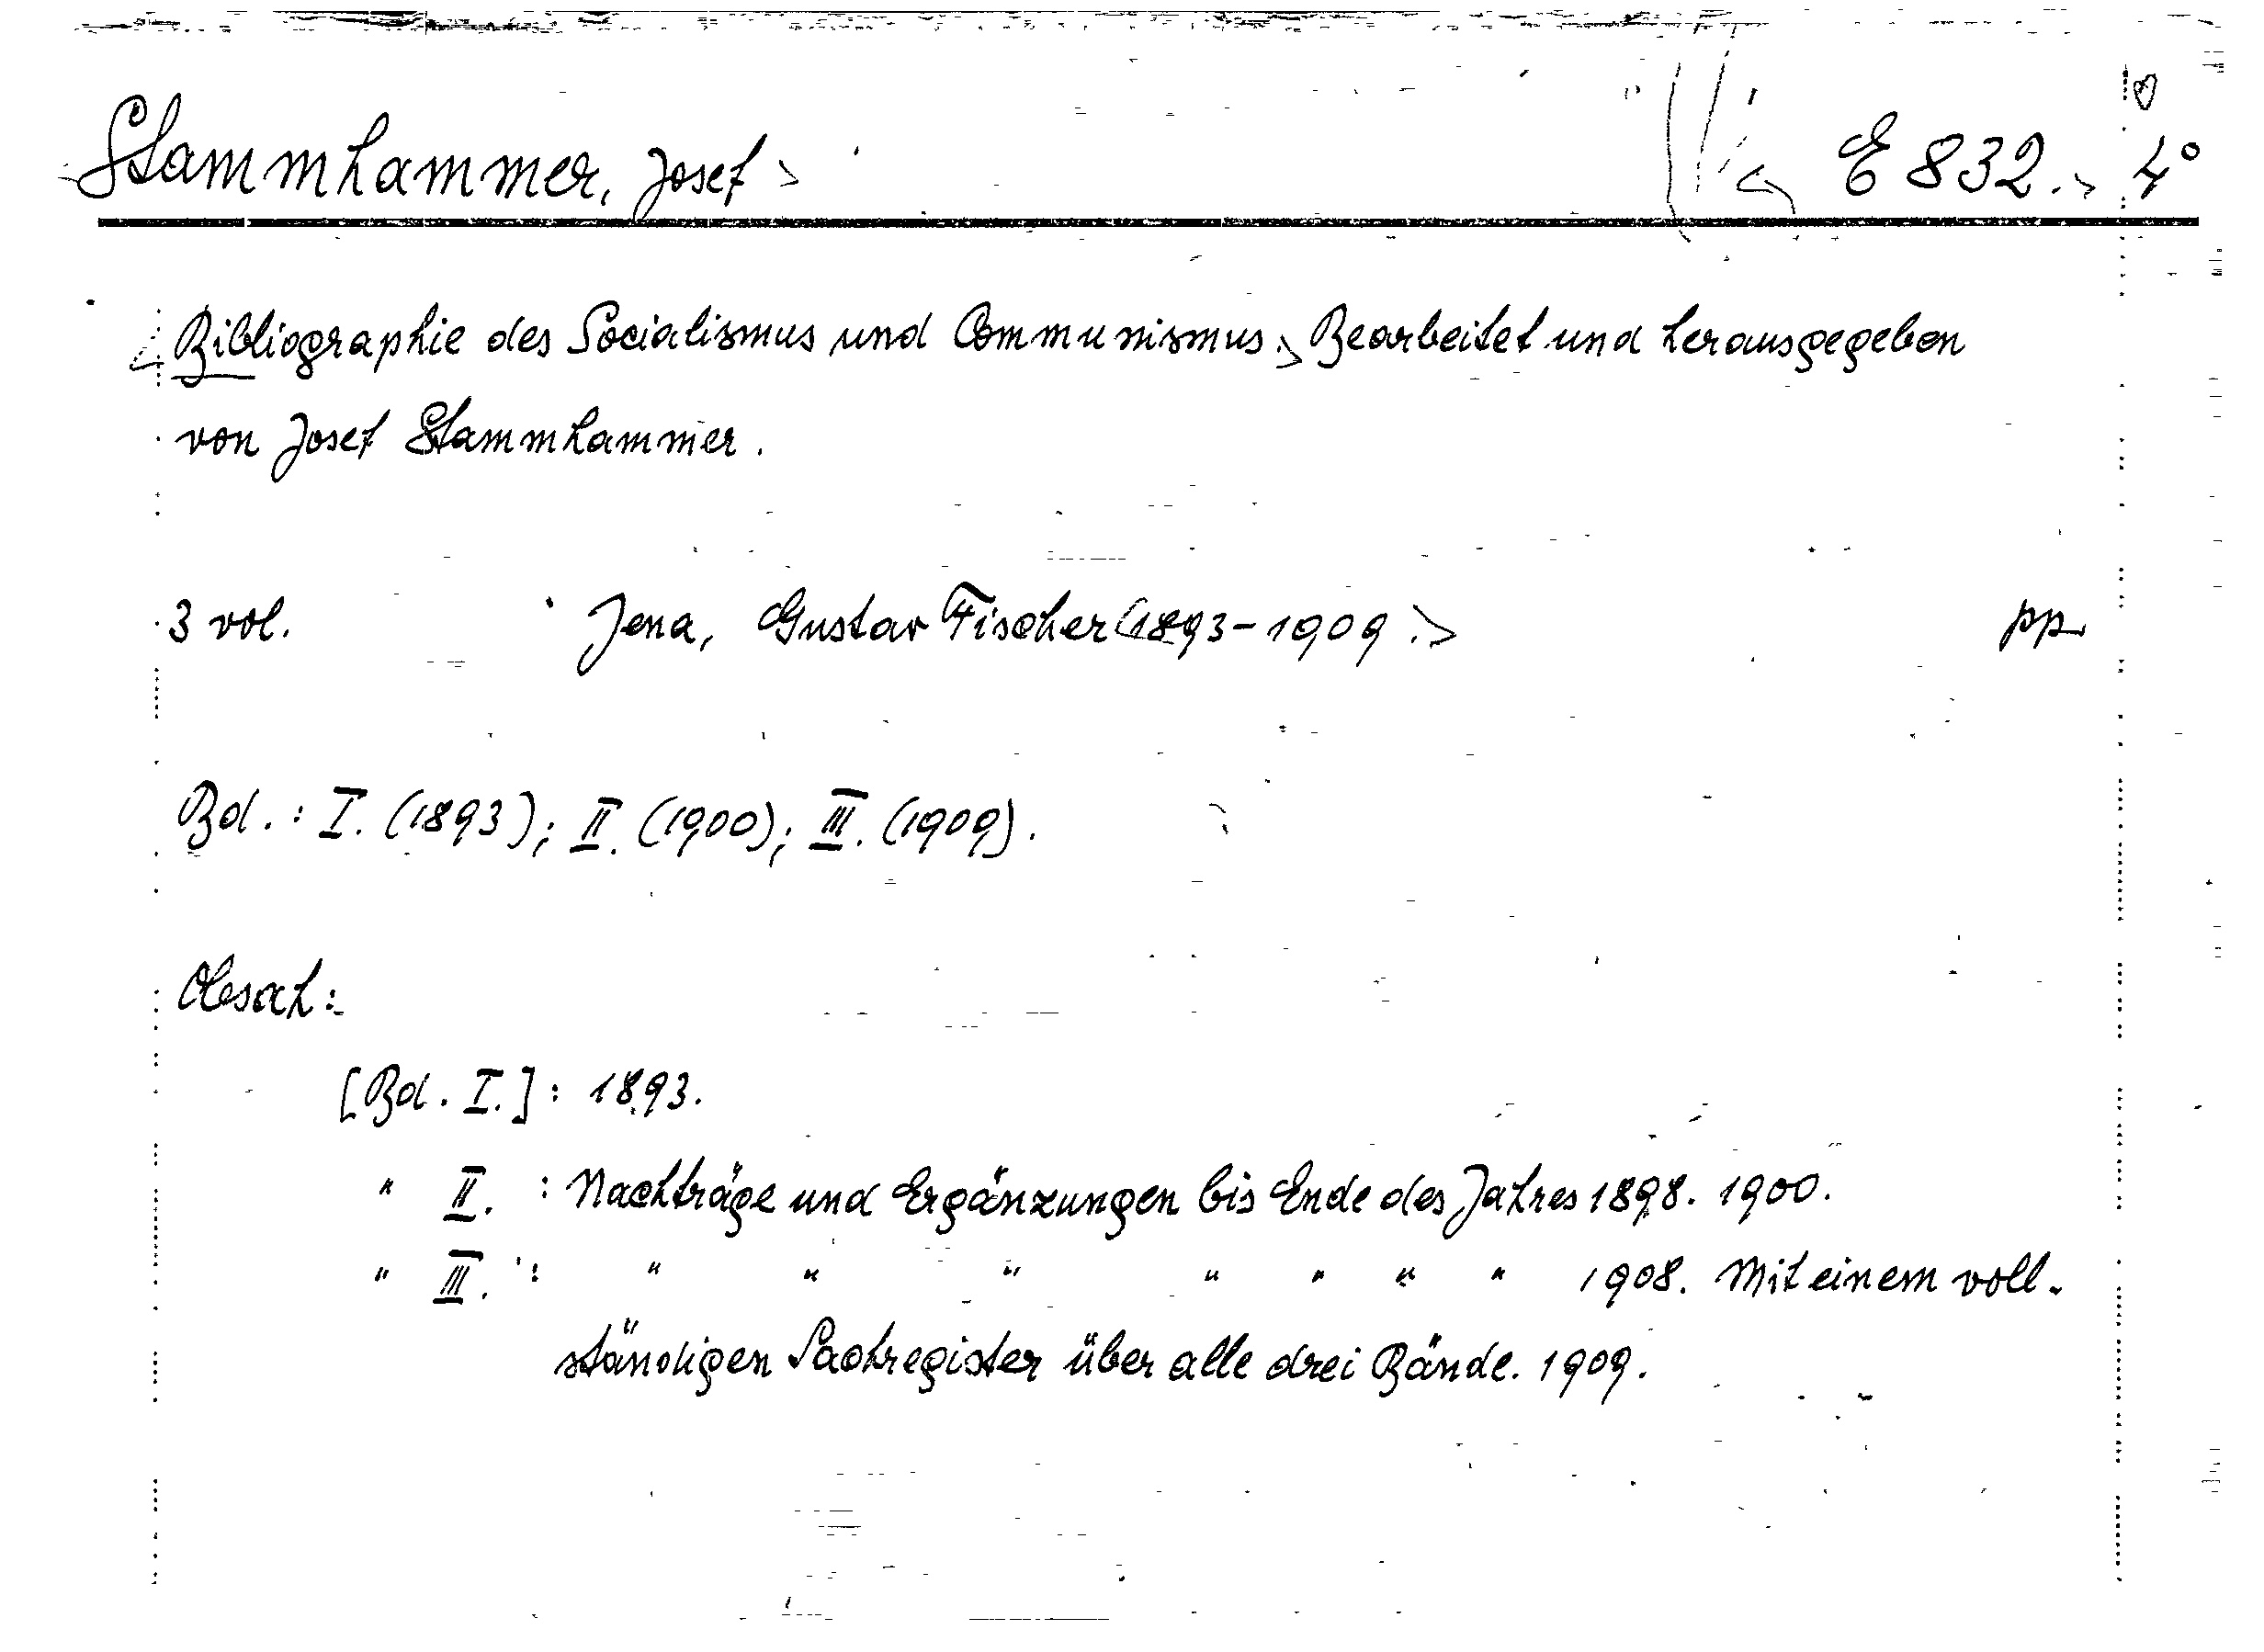 Stammhammer, Josef E 832. 4°
Bibliographie des Socialismus und Communismus. Bearbeitet und herausgegeben
von Josef Stammhammer.
3 vol. Jena, Gustav Fischer 1893-1909. pp.
Bd.: I. (1893); II. (1900); III. (1909).
Obsah:
[Bd. I.]: 1893.
" II. : Nachträge und Ergänzungen bis Ende des Jahres 1898. 1900.
" III. : " " " " " " " 1908. Mit einem voll-
ständigen Sachregister über alle drei Bände. 1909.